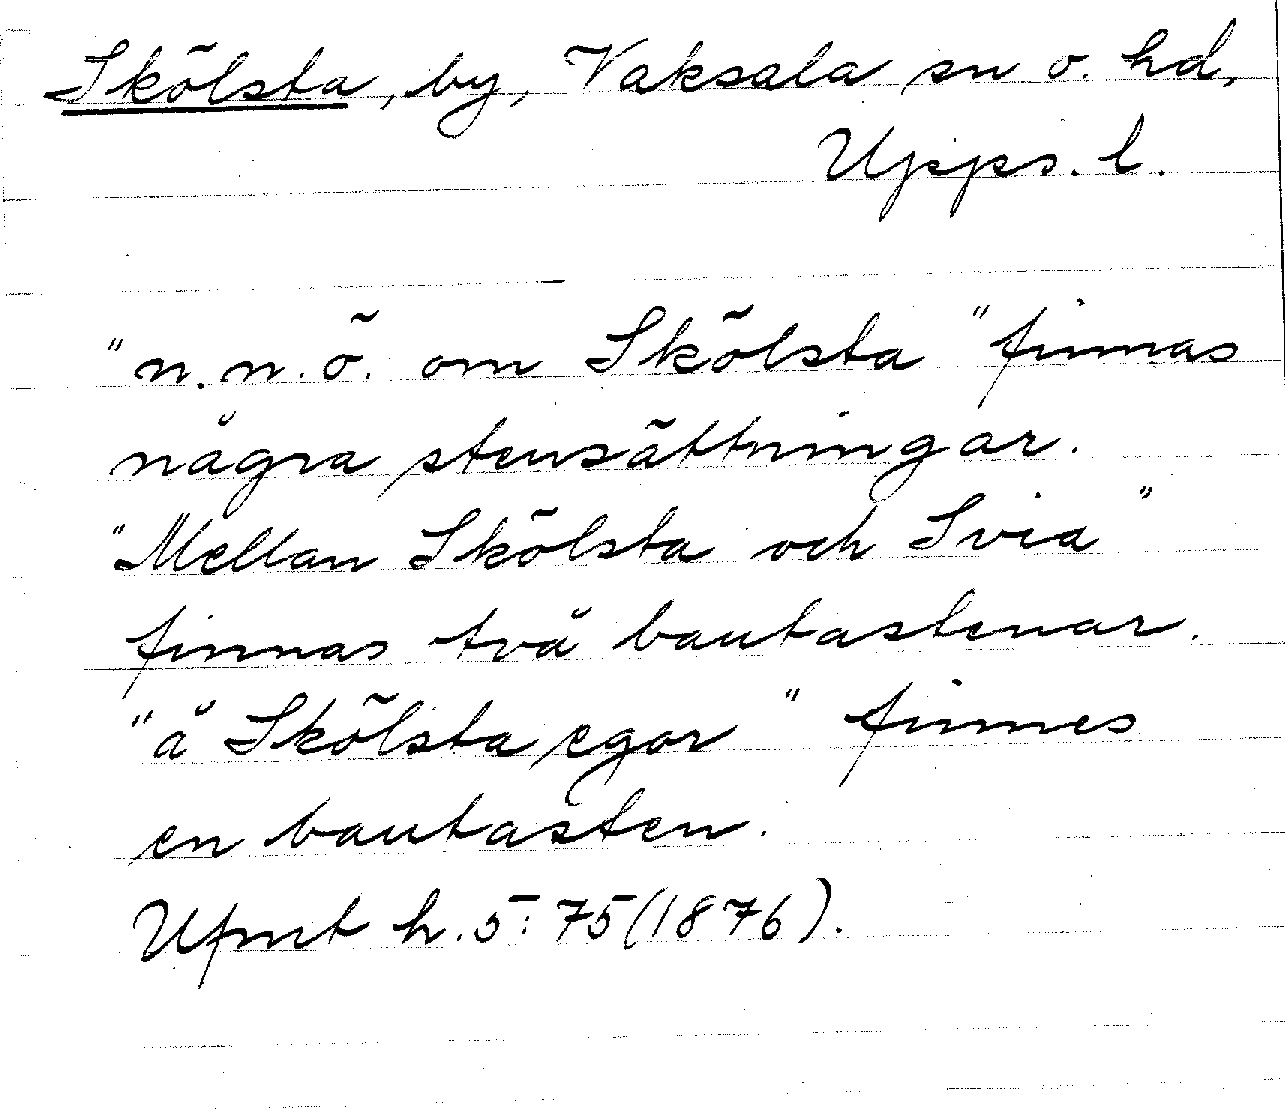 Skölsta, by, Vaksala sn o. hd,
Upps. l.
"n.n.ö. om Skölsta" finnas
några stensättningar.
"Mellan Skölsta och Svia"
finnas två bautastenar.
"å Skölsta egor" finnes
en bautasten.
Ufmt h.5:75(1876).